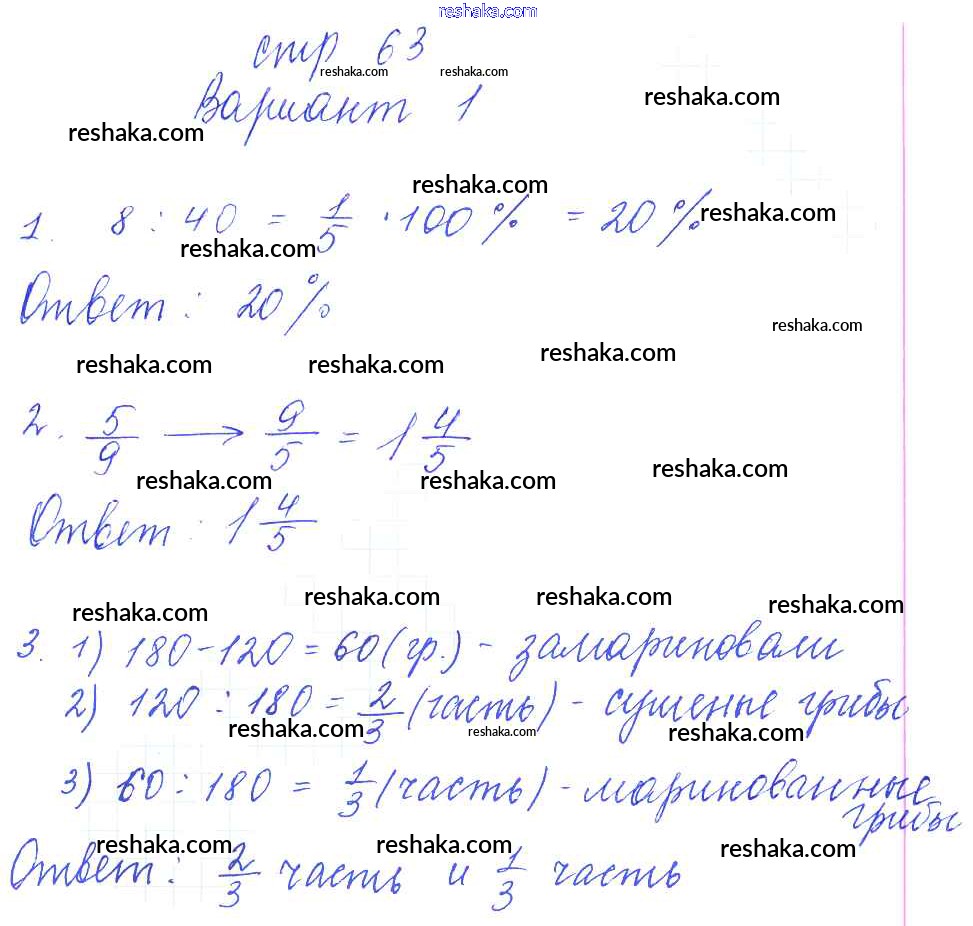 reshaka.com
стр 63
reshaka.com reshaka.com
Вариант 1
reshaka.com
reshaka.com
reshaka.com
1. 8 : 40 = 1/5 · 100 % = 20 %
reshaka.com
reshaka.com
Ответ : 20 %
reshaka.com
reshaka.com reshaka.com reshaka.com
2. 5/9 → 9/5 = 1 4/5
reshaka.com reshaka.com reshaka.com
Ответ : 1 4/5
reshaka.com reshaka.com reshaka.com reshaka.com
3. 1) 180 - 120 = 60 (гр.) - замариновали
2) 120 : 180 = 2/3 (часть) - сушеные грибы
reshaka.com reshaka.com reshaka.com
3) 60 : 180 = 1/3 (часть) - маринованные
грибы
reshaka.com reshaka.com reshaka.com
Ответ : 2/3 часть и 1/3 часть